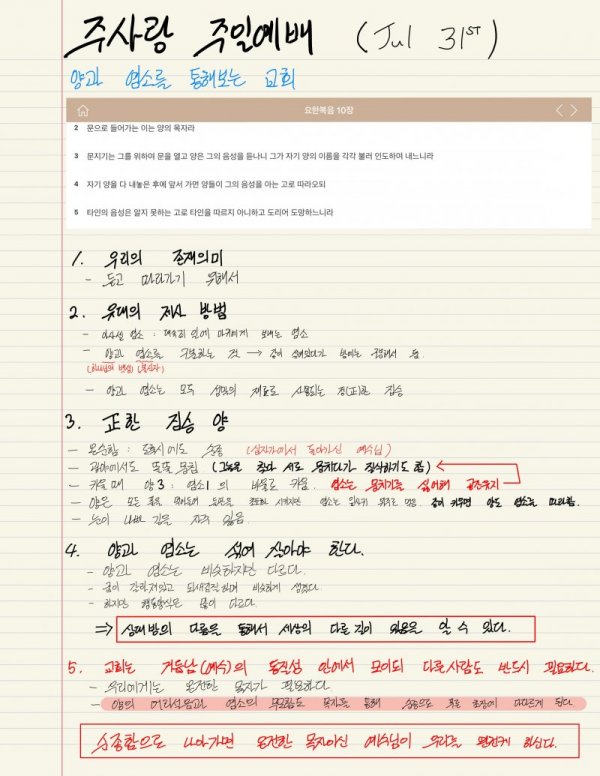 주사랑 주일예배 (Jul 31ST)
양과 염소를 통해보는 교회
요한복음 10장
2 문으로 들어가는 이는 양의 목자라
3 문지기는 그를 위하여 문을 열고 양은 그의 음성을 듣나니 그가 자기 양의 이름을 각각 불러 인도하여 내느니라
4 자기 양을 다 내놓은 후에 앞서 가면 양들이 그의 음성을 아는 고로 따라오되
5 타인의 음성은 알지 못하는 고로 타인을 따르지 아니하고 도리어 도망하느니라
1. 우리의 존재의미
- 듣고 따라가기 위해서
2. 유대의 제사 방법
- 아사셀 염소 : 대속죄일에 마귀에게 보내는 염소
- 양과 염소를 구분하는 것 → 같이 섞여있다가 밤에는 구분해서 둠.
(하나님의 백성) (불신자)
- 양과 염소는 모두 성막의 재료로 사용되는 정(正)한 짐승
3. 正한 짐승 양
- 온순함 : 도축시에도 순종 (십자가에서 돌아가신 예수님)
- 광야에서도 똘똘 뭉침 (그늘을 찾아 서로 뭉치다가 질식하기도 함)
- 키울때 양3 : 염소1 의 비율로 키움. 염소는 뭉치기를 싫어해 공간유지
- 양은 모든 풀을 염소는 같이 키우면 양도 염소를 따라함.
- 눈이 나빠 길을 자주 잃음.
4. 양과 염소는 섞여 살아야 한다.
- 양과 염소는 비슷하지만 다르다.
- 굽이 갈라져있고 되새김질하며 비슷하게 생겼다.
- 하지만 행동방식은 많이 다르다.
⇒ 상대방의 다름을 통해서 세상의 다른 길이 있음을 알 수 있다.
5. 교회는 거듭남(예수)의 동질성 안에서 모이되 다른사람도 반드시 필요하다.
- 우리에게는 온전한 목자가 필요하다.
- 양의 어리석음과 염소의 부족함도 목자를 통해 순종으로 푸른 초장에 다다르게 된다.
순종함으로 나아가면 온전한 목자이신 예수님이 우리를 완전케 하신다.